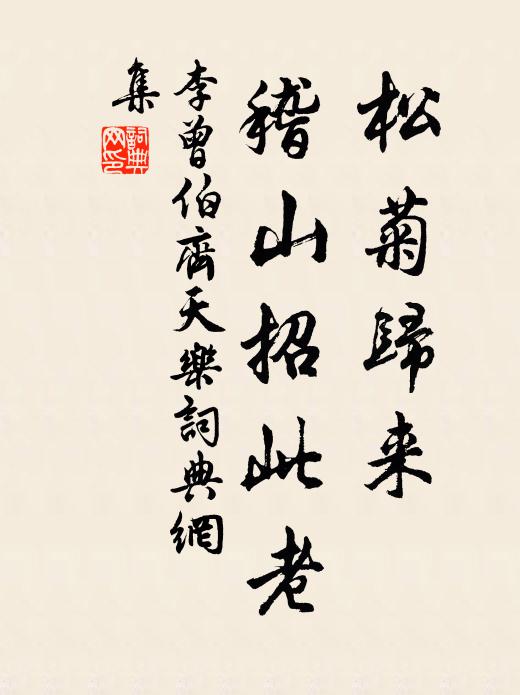 松菊歸来
稽山招此老
李曾伯齊天樂詞典網
集
詞典
网印